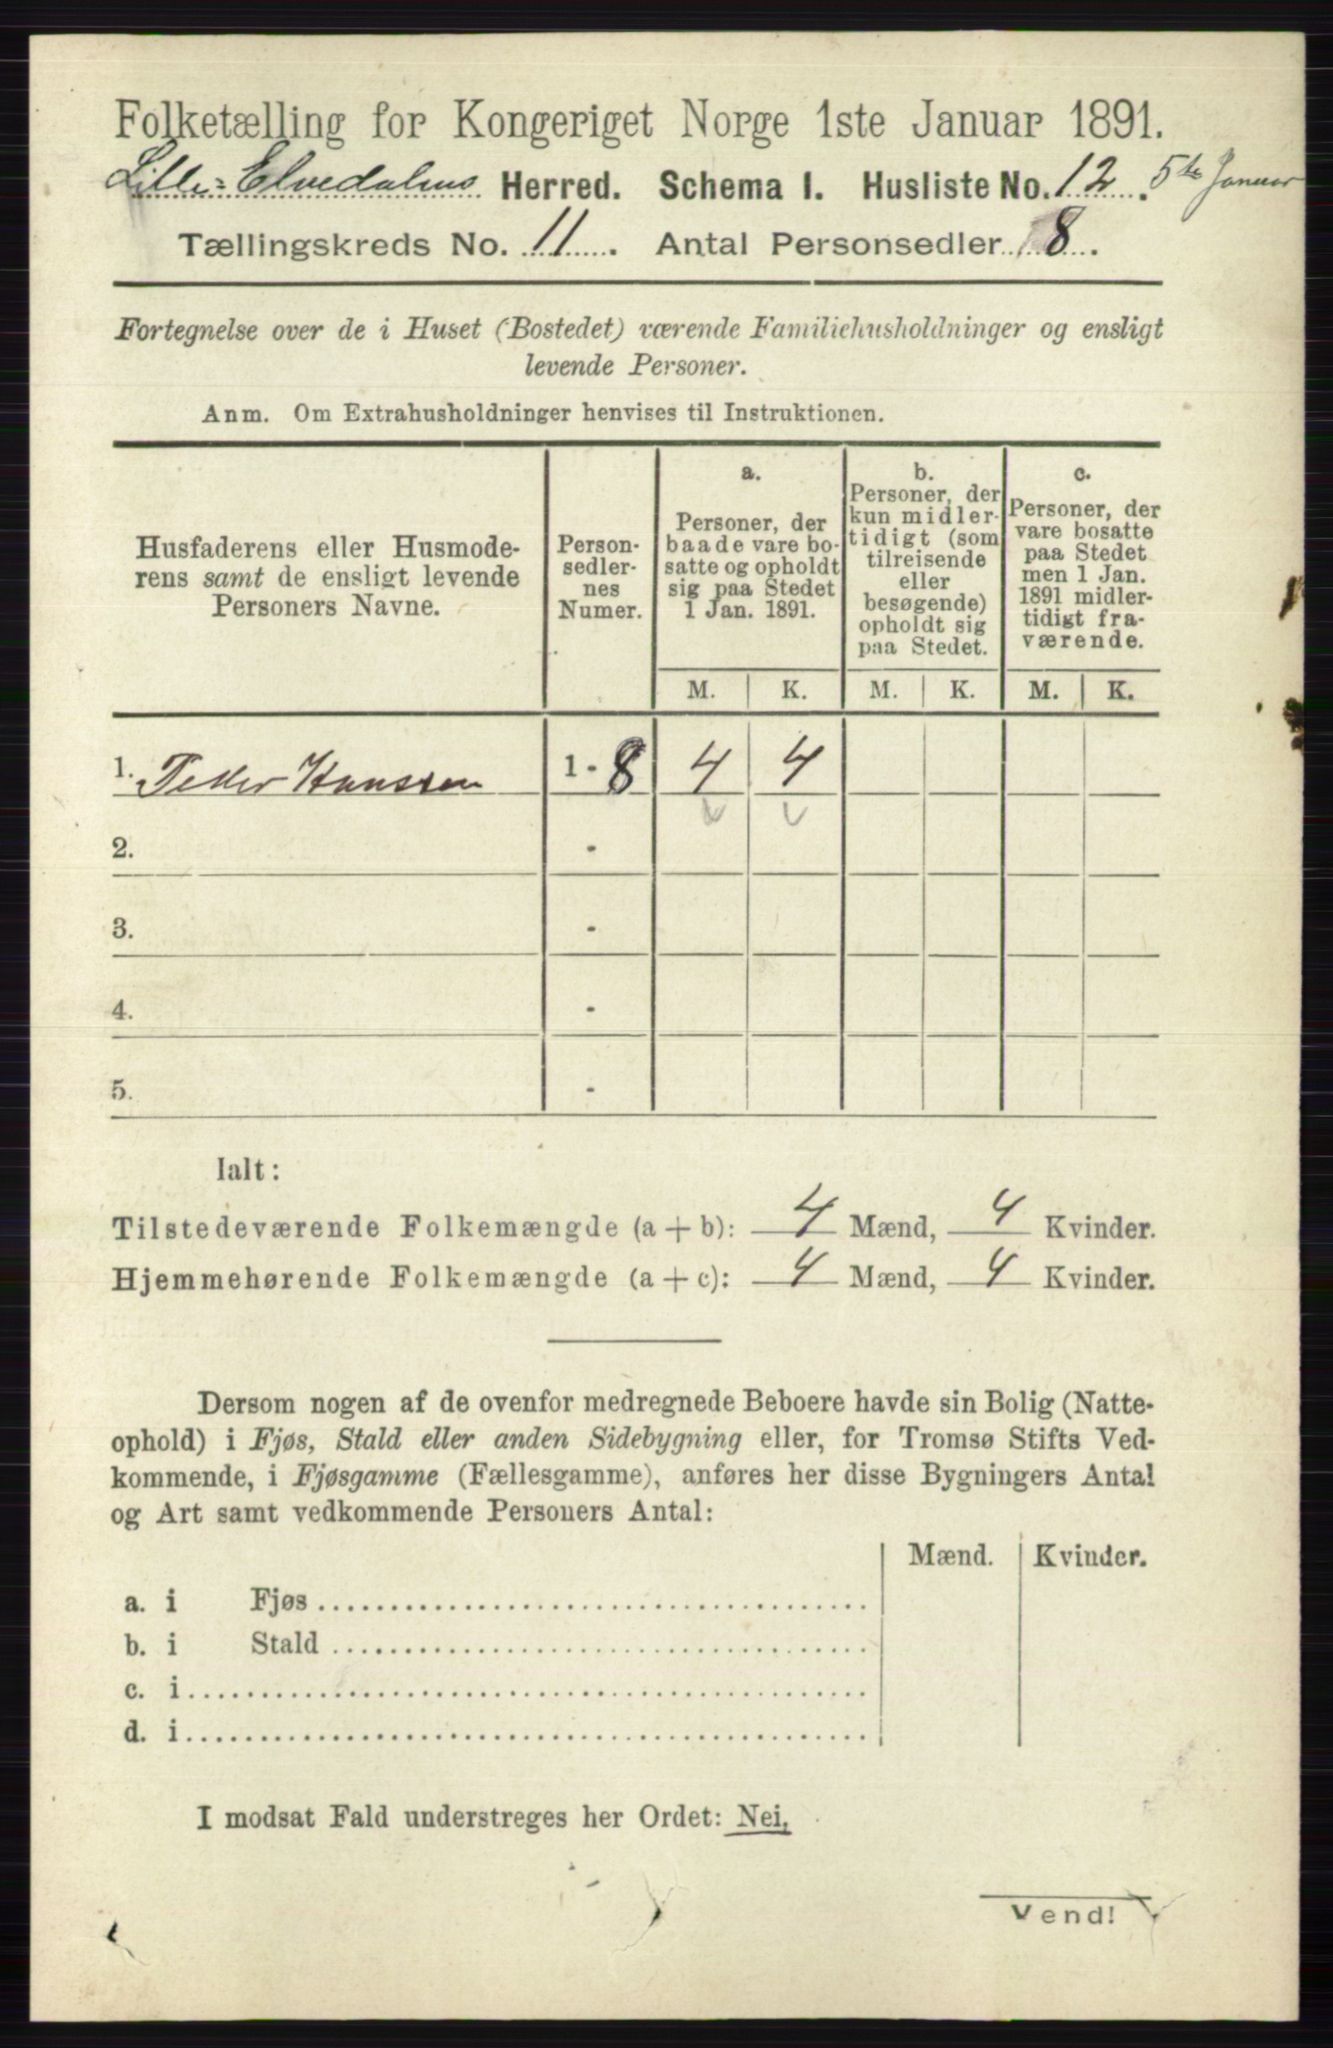 Folketælling for Kongeriget Norge 1ste Januar 1891.
Lille-Elvedalens Herred. Schema I. Husliste No. 12. 5te Januar
Tællingskreds No. 11. Antal Personsedler 8.
Fortegnelse over de i Huset (Bostedet) værende Familiehusholdninger og ensligt
levende Personer.
Anm. Om Extrahusholdninger henvises til Instruktionen.
Husfaderens eller Husmode-
rens samt de ensligt levende
Personers Navne.
Person-
sedler-
nes
Numer.
a.
Personer, der
baade vare bo-
satte og opholdt
sig paa Stedet
1 Jan. 1891.
b.
Personer, der
kun midler-
tidigt (som
tilreisende
eller
besøgende)
opholdt sig
paa Stedet.
c.
Personer, der
vare bosatte
paa Stedet
men 1 Jan.
1891 midler-
tidigt fra-
værende.
M. K. M. K. M. K.
1. Peder Hanssen 1 - 8 4 4
2. -
3. -
4. -
5. -
Ialt:
Tilstedeværende Folkemængde (a + b): 4 Mænd, 4 Kvinder.
Hjemmehørende Folkemængde (a + c): 4 Mænd, 4 Kvinder.
Dersom nogen af de ovenfor medregnede Beboere havde sin Bolig (Natte-
ophold) i Fjøs, Stald eller anden Sidebygning eller, for Tromsø Stifts Ved-
kommende, i Fjøsgamme (Fællesgamme), anføres her disse Bygningers Antal
og Art samt vedkommende Personers Antal:
Mænd. Kvinder.
a. i Fjøs
b. i Stald
c. i
d. i
I modsat Fald understreges her Ordet: Nei.
Vend!